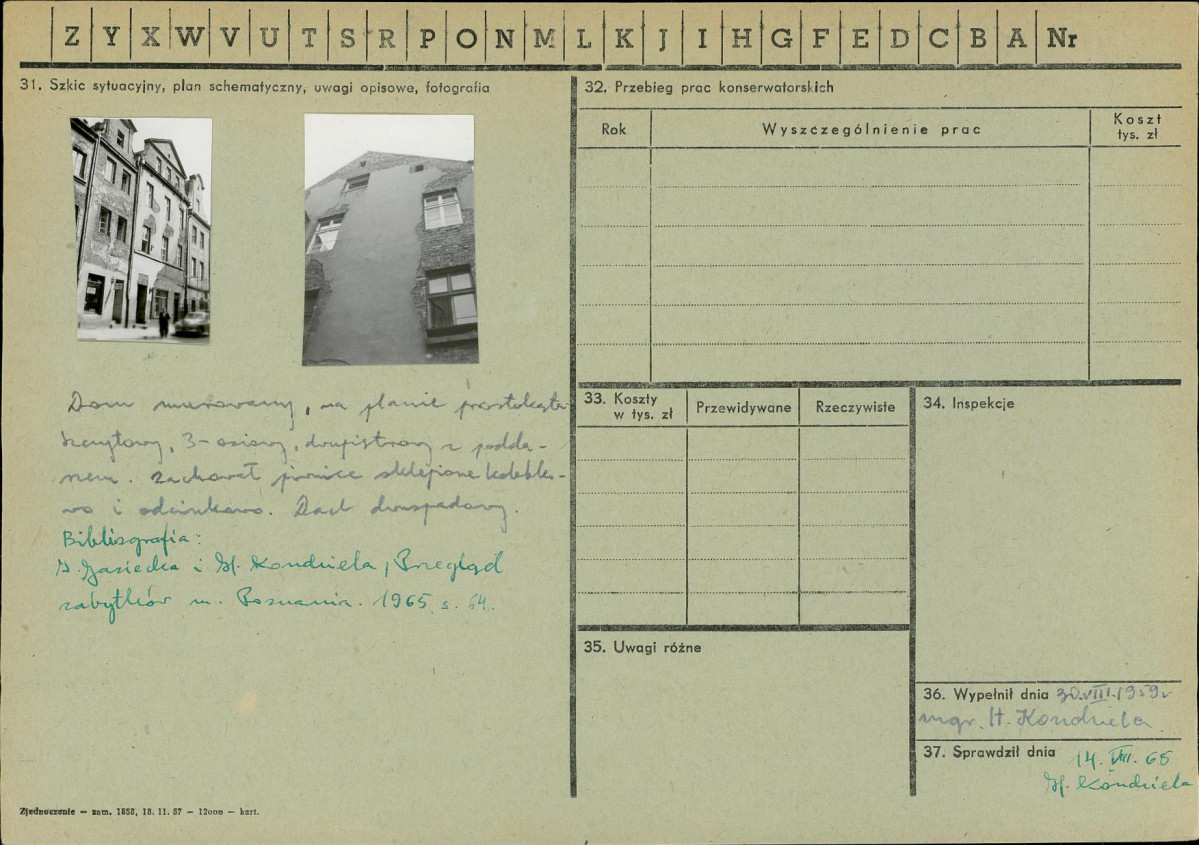 Z Y X W V U T S R P O N M L K J I H G F E D C B A Nr
31. Szkic sytuacyjny, plan schematyczny, uwagi opisowe, fotografia
Dom murowany, na planie prostokąta
szczytowy, 3-osiowy, dwupiętrowy z podda-
szem. Zachował piwnice sklepione kolebko-
wo i odcinkowo. Dach dwuspadowy.
Bibliografia:
i H. Kondziela, Przegląd
zabytków m. Poznania. 1965 s. 64.
Zjednoczenie — zam. 1858, 18. 11. 57 — 12000 — kart.
32. Przebieg prac konserwatorskich
Rok
Wyszczególnienie prac
Koszt
tys. zł
33. Koszty
w tys. zł
Przewidywane
Rzeczywiste
34. Inspekcje
35. Uwagi różne
36. Wypełnił dnia 30.VIII.1959 r
mgr. H. Kondziela
37. Sprawdził dnia 14. VIII. 65
H. Kondziela